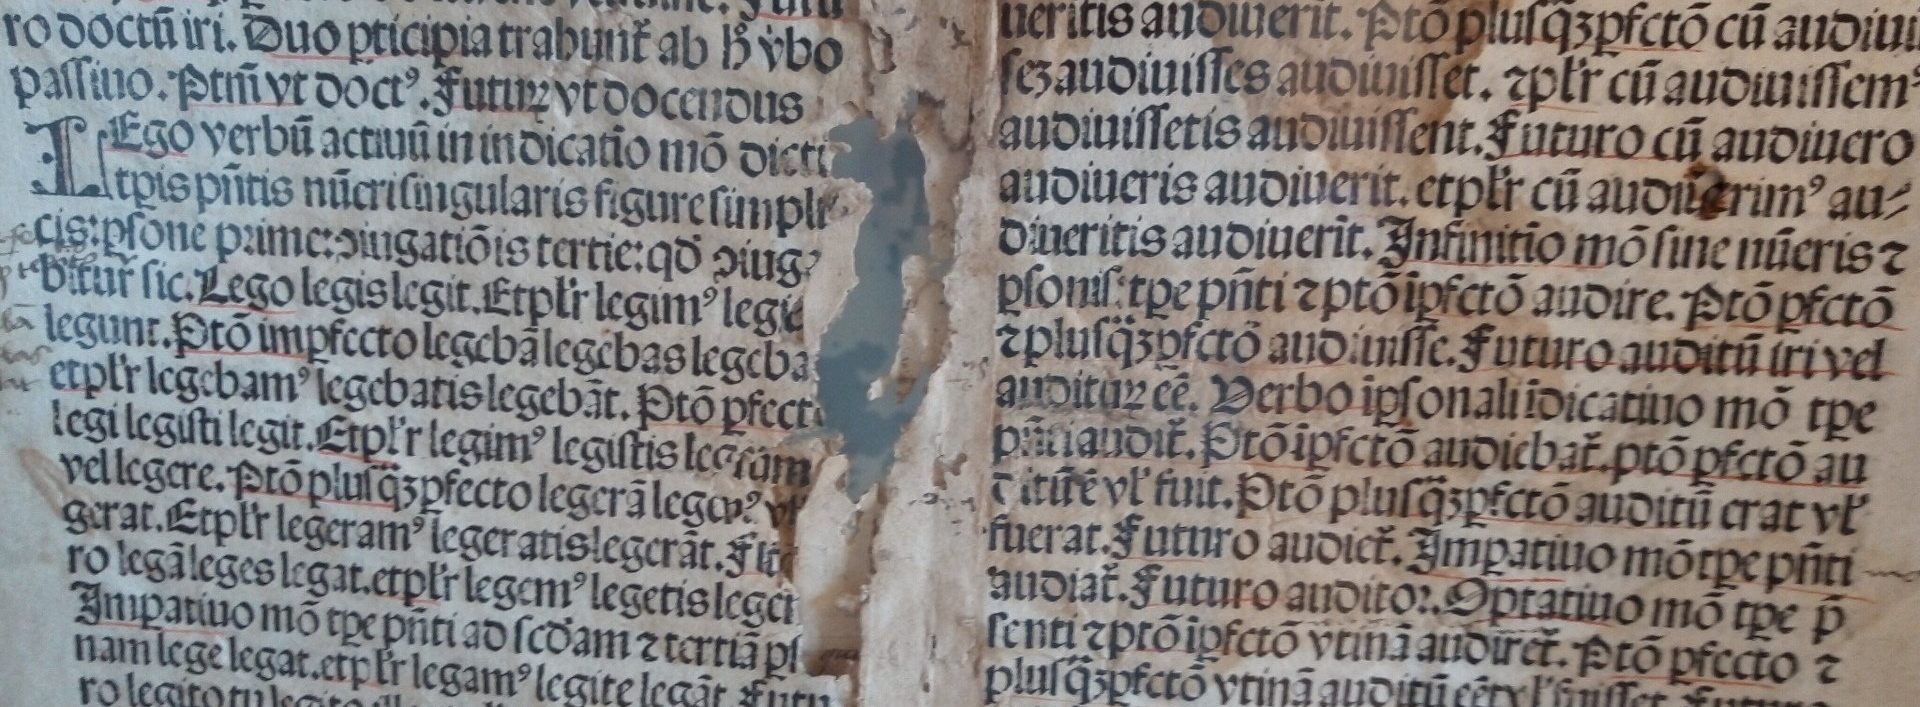 ro doctū iri. Duo pticipia trahunt̄ ab h̄ v̄bo
passiuo. Ptm̄ vt doctꝰ. Futuꝝ vt docendus
LEgo verbū actiuū in indicatiō mō dicti
tꝑis pn̄tis nūeri singularis figure simpli
cis: ꝑsone prime: ꝯiugatiōis tertie: qd̄ ꝯiuga
bitur̄ sic. Lego legis legit. Et pl'r legimꝰ legi
legunt. Ptō impfecto legebā legebas legeba
et pl'r legebamꝰ legebatis legebāt. Ptō ꝑfect
legi legisti legit. Et pl'r legimꝰ legistis legerūt
vel legere. Ptō plusq̄ꝫꝑfecto legerā
gerat. Et pl'r legeramꝰ legeratis legerāt. Fu
ro legā leges legat. et pl'r legemꝰ legetis legent
Impatiuo mō tꝑe pn̄ti ad scd̄am ⁊ tertiā ꝑs
nam lege legat. et pl'r legamꝰ legite legāt. Futu
ro legito tu legito ille
ueritis audiuerīt. Ptō plusq̄ꝫꝑfctō cū audiui
sez audiuisses audiuisset. ⁊ pl'r cū audiuissemꝰ
audiuissetis audiuissent. Futuro cū audiuero
audiueris audiuerit. et pl'r cū audiuerimꝰ au⸗
diueritis audiuerīt. Infinitiō mō sine nūeris ⁊
ꝑsonis: tꝑe pn̄ti ⁊ ptō īꝑfctō audire. Ptō ꝑfctō
⁊ plusq̄ꝫꝑfctō audiuisse. Futuro auditū iri vel
audituꝝ eē. Verbo īꝑsonali īdicatiuo mō tꝑe
pn̄ti audit̄. Ptō īꝑfctō audiebat̄. ptō ꝑfctō au
ditū ē vl' fuit. Ptō plusq̄ꝫꝑfctō auditū erat vl'
fuerat. Futuro audiet̄. Impatiuo mō tꝑe pn̄ti
audiat̄. Futuro auditor. Optatiuo mō tꝑe p̄
senti ⁊ ptō īꝑfctō vtinā audiret̄. Ptō ꝑfecto ⁊
plusq̄ꝫꝑfctō vtinā auditū eēt vl' fuisset. Futuro